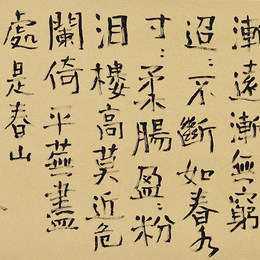 漸遠漸無窮
迢〻不斷如春水
寸〻柔腸盈〻粉
泪樓高莫近危
闌倚平蕪盡
處是春山